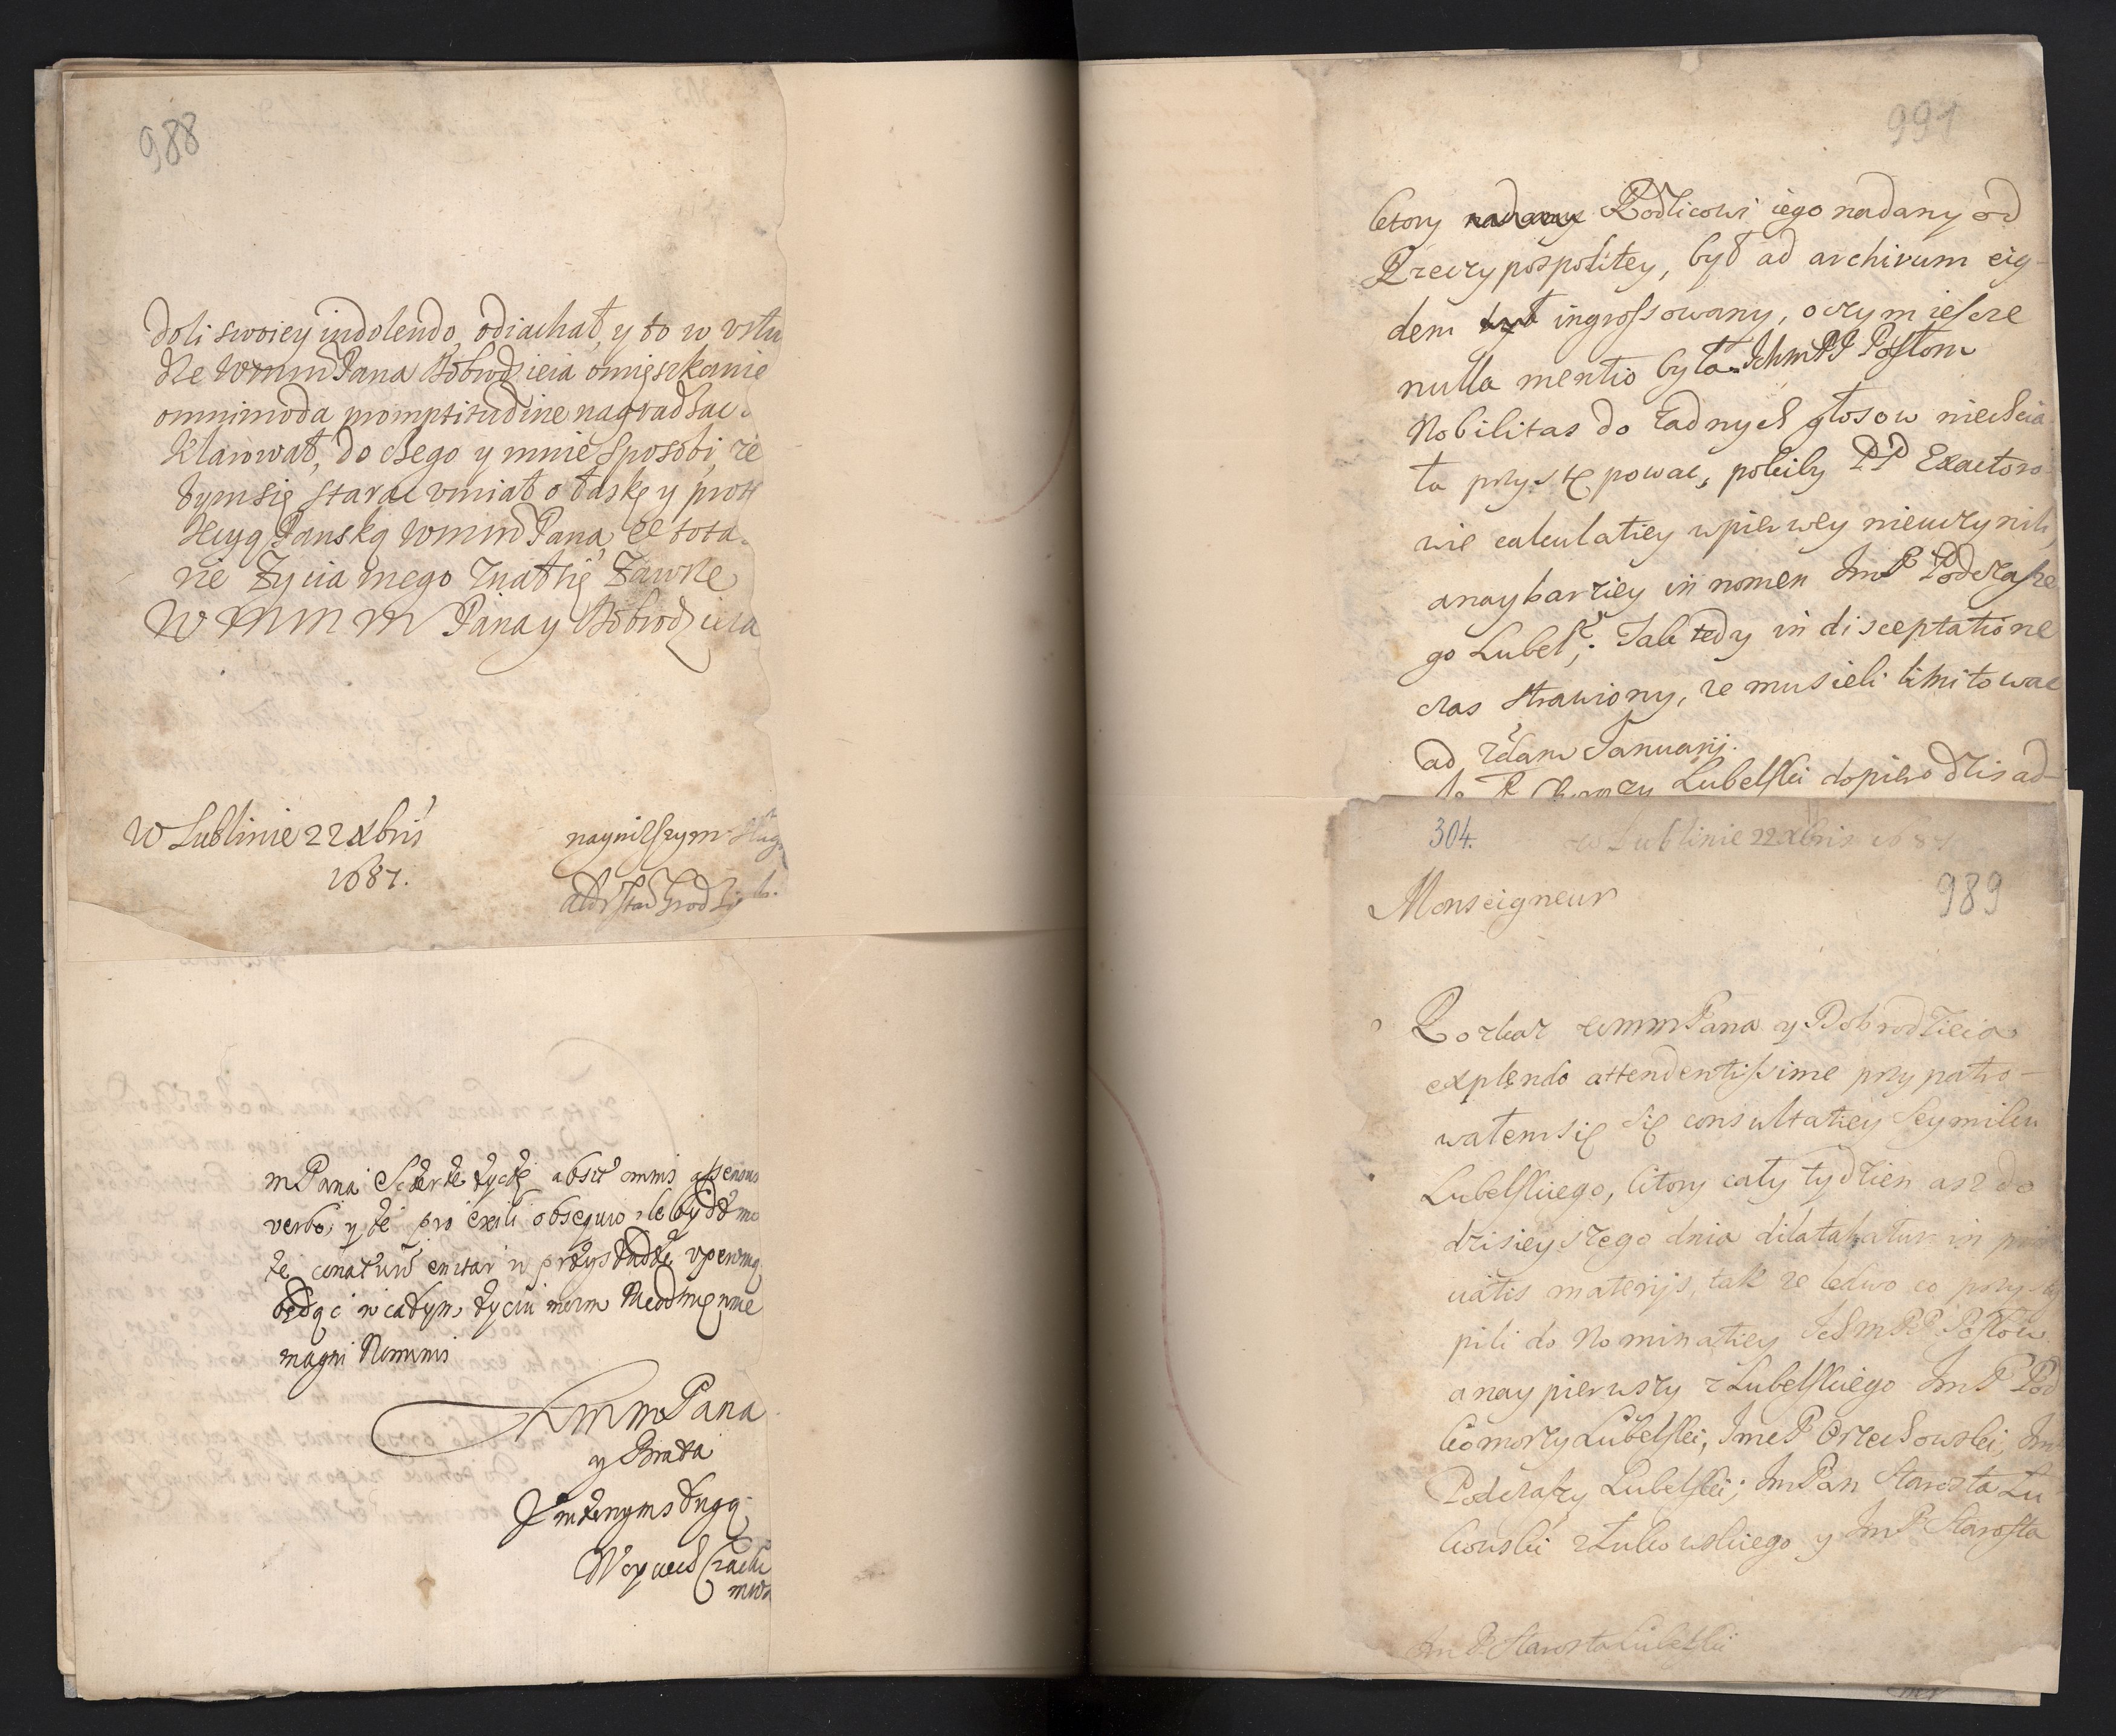 988
doli swoiey indolendo, odiachał, y to w vsłu
dze WMM Pana Dobrodzieia omięszkanie
omnimoda promptitudine nagradzac
klarował, do czego y mnie sposobi, ze
bym się starac vmiał o łaskę y prote
kcyą Panską WMM Pana, ex tota
Zycia mego Zawsze
WMMM Pana y Dobrodzieia
W Lublinie 22 Xbris
1687.
nayniższym sługą
m Pana Szczerze życzę absit omnis
verbo, y że pro exili obsequio
że
będąc w całym życiu moim Nieodmięnnie
magni Nominis
WmmPana
y Brata
Vniżonym sługą
991
ktory nadany Rodzicowi iego nadany od
Rzeczypospolitey, był ad archivum eig-
dem był ingrossowany, o czym iescze
nulla mentio była. IchmPP Posłom
Nobilitas do żadnych głosow niechcia
ła przystępowac, pokiby PP Exactoro
wie calculatiey wpierwey nieuczynili,
a naybarziey in nomen ImP Podczasze
go Lubelsk; Tak tedy in disceptatione
czas strawiony, ze musieli limitowac
ad 2dam Januarij.
Lubelski dopiero dzis ad-
304.
w Lublinie 22 Xbris 1687
Monseigneur
989
Rozkaz WmmPana y Dobrodzieia
explendo attendentissime przypatro-
wałem się się consultatiey Seymiku
Lubelskiego, ktory cały tydzien asz do
dzisieyszego dnia dilatabatur in pri
uatis materijs, tak ze ledwo co przystą
pili do Nominatiey IchmPP. Posłow
a naypierwszy z Lubelskiego ImP Pod
komorzy Lubelski, ImcP Orzechowski, Im
Podczaszy Lubelski; ImPan Starosta Łu
kowski z Łukowskiego y ImP. Starosta
Im P. Starosta Lubelski